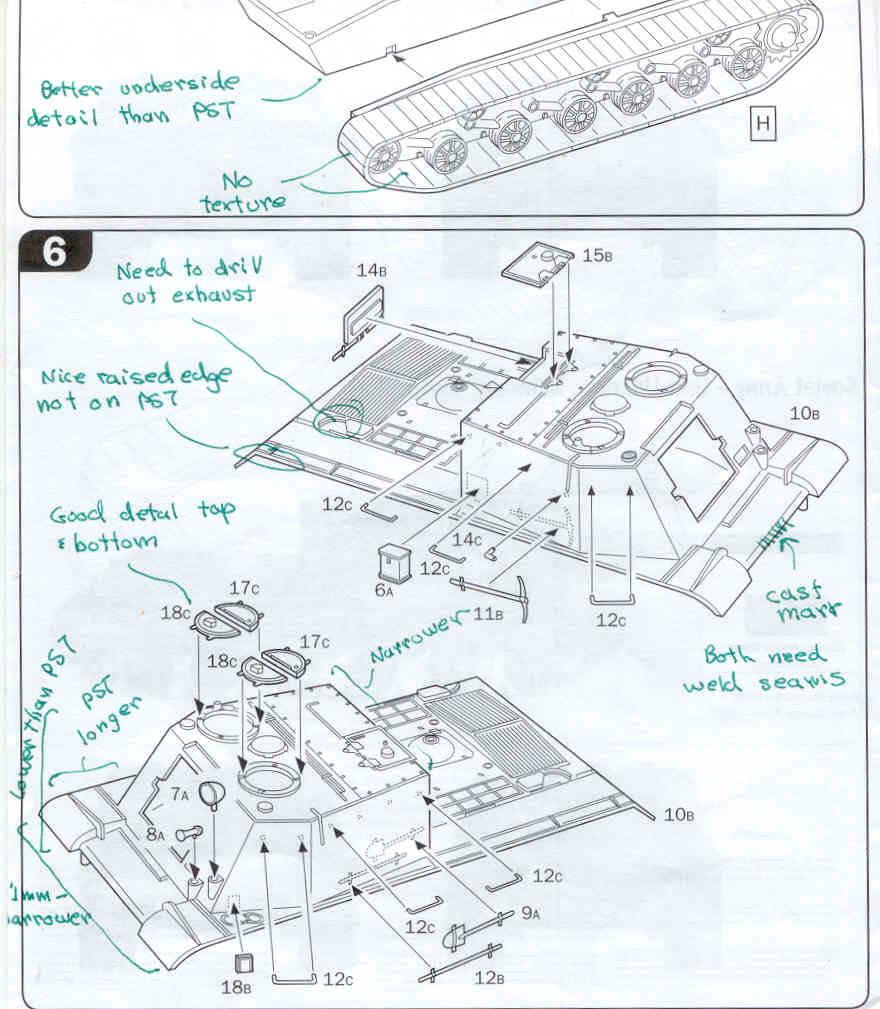 Better underside
detail than PST
H
No
texture
6
Need to drill
out exhaust
14B
15B
Nice raised edge
not on PST
10B
12C
Good detal top
& bottom
14C
12C
6A
11B
12C
cast
marr
17C
18C
17C
18C
Narrower
Both need
weld seams
Lower than PST
PST
longer
7A
8A
10B
1mm -
narrower
12C
9A
12C
12B
18B
12C